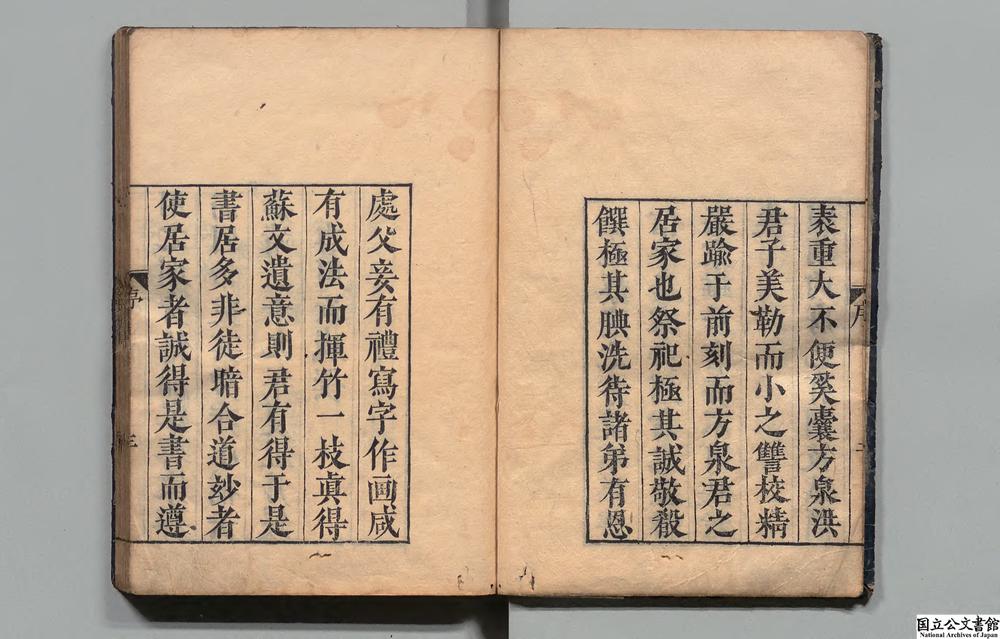 袠重大不便奚囊方泉洪
君子美勒而小之讐校精
嚴踰于前刻而方泉君之
居家也祭祀極其誠敬殺
饌極其腆洗待諸弟有恩
序
二
處父妾有禮寫字作画咸
有成法而揮竹一枝真得
蘇文遺意則君有得于是
書居多非徒暗合道玅者
使居家者誠得是書而遵
序
三
国立公文書館
National Archives of Japan